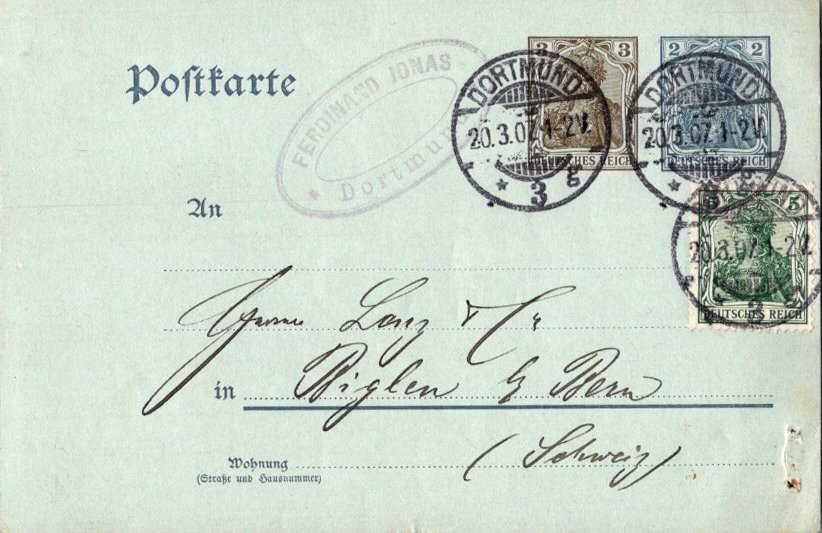 Postkarte
FERDINAND JONAS
* Dortmund
3 3
DEUTSCHES REICH
2 2
DEUTSCHES REICH
DORTMUND
20.3.07.1-2V.
* 3 g
DORTMUND
20.3.07.1-2V.
* g
5 5
DEUTSCHES REICH
20.3.07.1-2V.
* 3
An
Lanz & Cie
in Biglen b/ Bern
(Schweiz)
Wohnung
(Straße und Hausnummer)